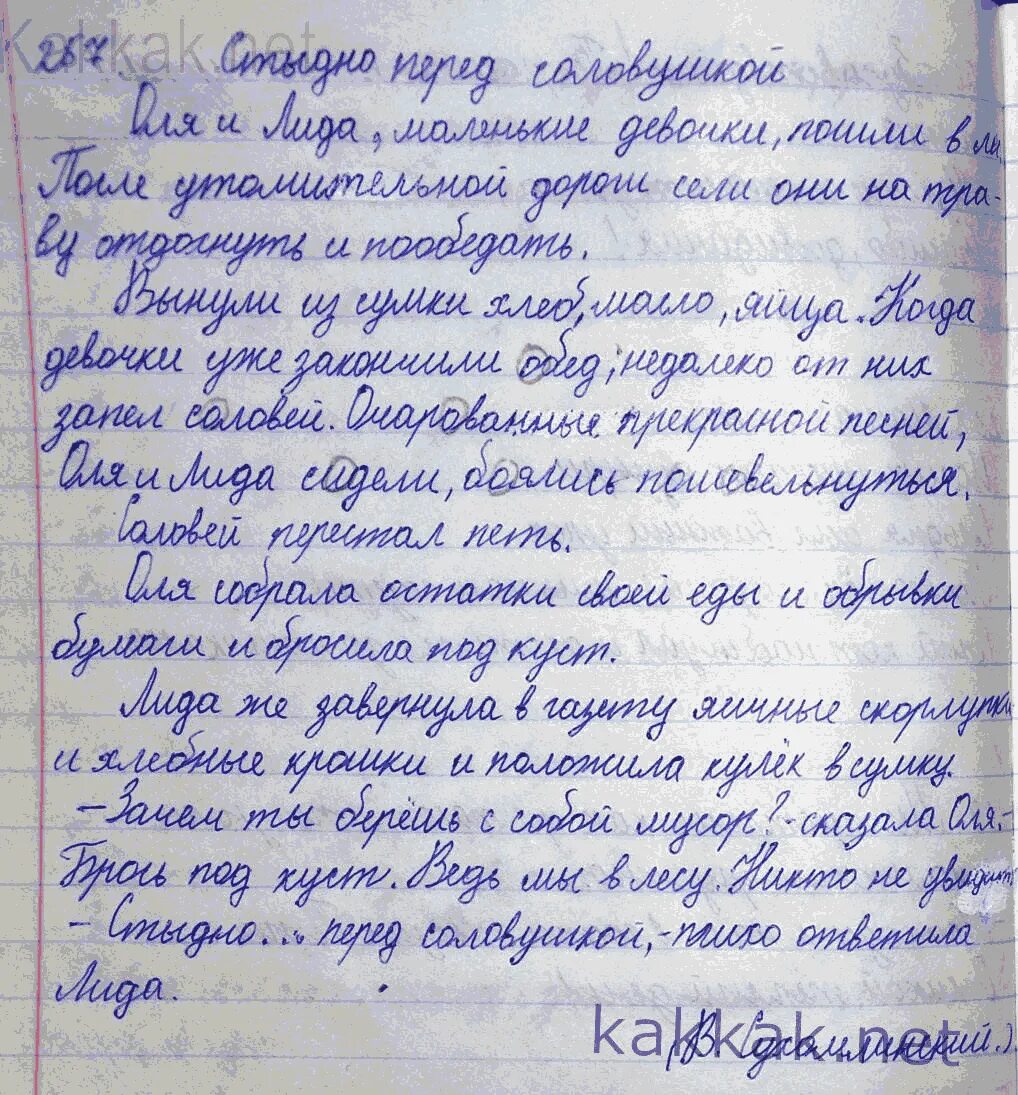 Kakkak.net
257. Стыдно перед соловушкой
Оля и Лида, маленькие девочки, пошли в
После утомительной дороги сели они на тра-
ву отдохнуть и пообедать.
Вынули из сумки хлеб, масло, яйца. Когда
девочки уже закончили обед, недалеко от них
запел соловей. Очарованные прекрасной песней,
Оля и Лида сидели, боялись пошевельнуться.
Соловей перестал петь.
Оля собрала остатки своей еды и обрывки
бумаги и бросила под куст.
Лида же завернула в газету яичные скорлупки
и хлебные крошки и положила кулёк в сумку.
- Зачем ты берёшь с собой мусор? - сказала Оля. -
Брось под куст. Ведь мы в лесу. Никто не увидит.
- Стыдно... перед соловушкой, - тихо ответила
Лида.
(В. Сухомлинский.)
kakkak.net